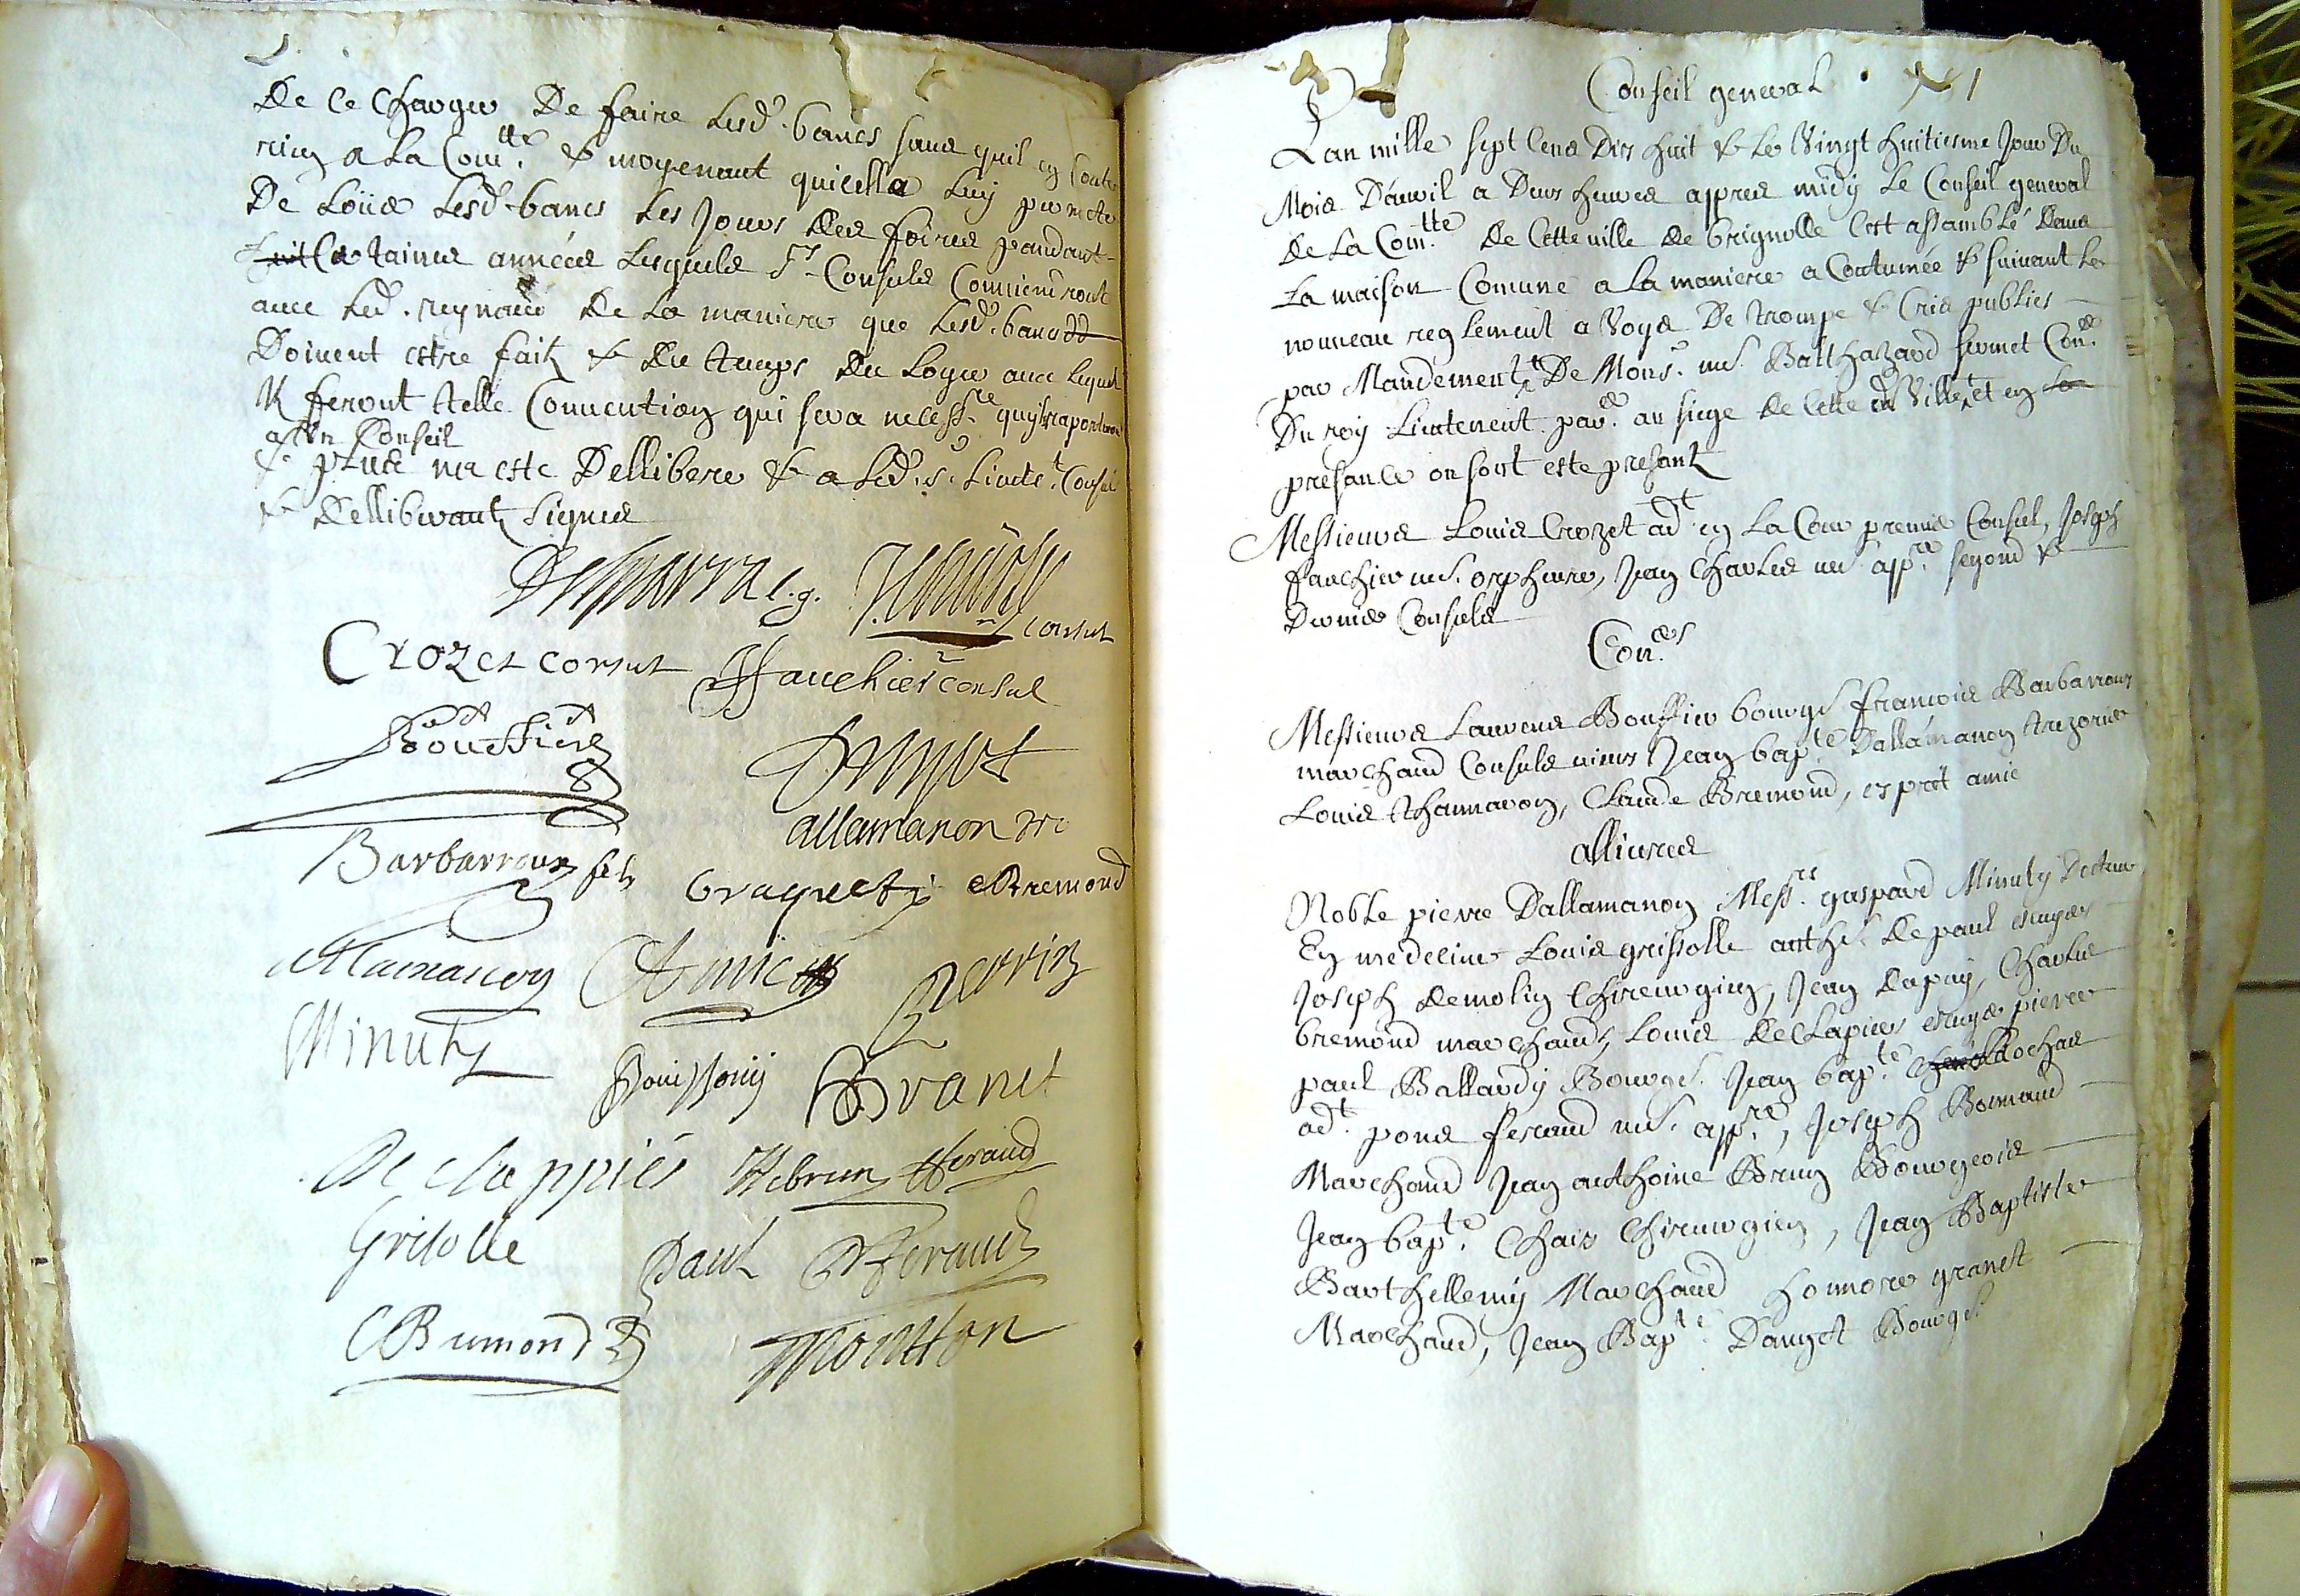 De ce charger De faire lesd. bancs sans quil en coute
rien a la Com.tte & moyenant quicelle luy permete
De Loüer Lesd. bancs Les Jours Des foires pandant
certaines années Lesquels Srs Consuls Conviendront
avec led. reynaud De la maniere que Lesd. bancs
Doivent estre faitz & Du temps Du Loyer avec lequel
Il feront telle Convention qui sera necess.re
a un Conseil
& plus na este Dellibere & a led. s. Lieute.t Consuls
& Delliberantz signes
Desparra l. g.
consul
Crozet consul ffauchier consul
Bouffier
allamanon
Barbarroux braquety Bremond
Amic Perrin
Minuty
Bouissony Granet
De clappiés Hebrun fferaud
Grisolle Paul fferaud
CBremond Moutton
Conseil general
Lan mille sept cens Dix huit & le Vingt huitiesme Jour Du
Mois Dauril a Deux heures appres midy Le Conseil general
De La Com.tte De Cette ville De brignolle Cest assamblé Dans
La maison Comune a la maniere a Coutumée & suivant le
nouveau reglement a Voye De trompe & Cris publics
par Mandement De Mons.r me. Balthazard fermet Con.er
Du roy Lieutenent par.er au siege De Cette Ville et en
presance on sont este presantz
Messieurs Louis Crozet ad.t en La Cour premier Consul, Joseph
fauchier me. orpheure, Jean Charles me. app.re segond &
Dernier Consuls
Con.ers
Messieurs Laurens Bouffier bourg. francois Barbarroux
marchand Consuls vieux Jean bap.te Dallamanon trezorier
Louis thamaron, Claude Bremond, esprit amic
alliures
Noble pierre Dallamanon Mess.rs gaspard Minuty Docteur
En medecine Louis grissolle anth. De paul escuyer
Joseph Demolin Chireurgien, Jean Dapuy, Charles
bremond marchands, Louis De Clapiers escuyer pierre
paul Ballardy Bourge. Jean bap.te Rochas
ad.t pons feraud me. app.re, Joseph Bormand
Marchand Jean anthoine Brun Bourgeois
Jean bap.te Chaix Chireurgien, Jean Baptiste
Barthellemy Marchand honnore granet
Marchand, Jean Bap.te Dauget Bourge.